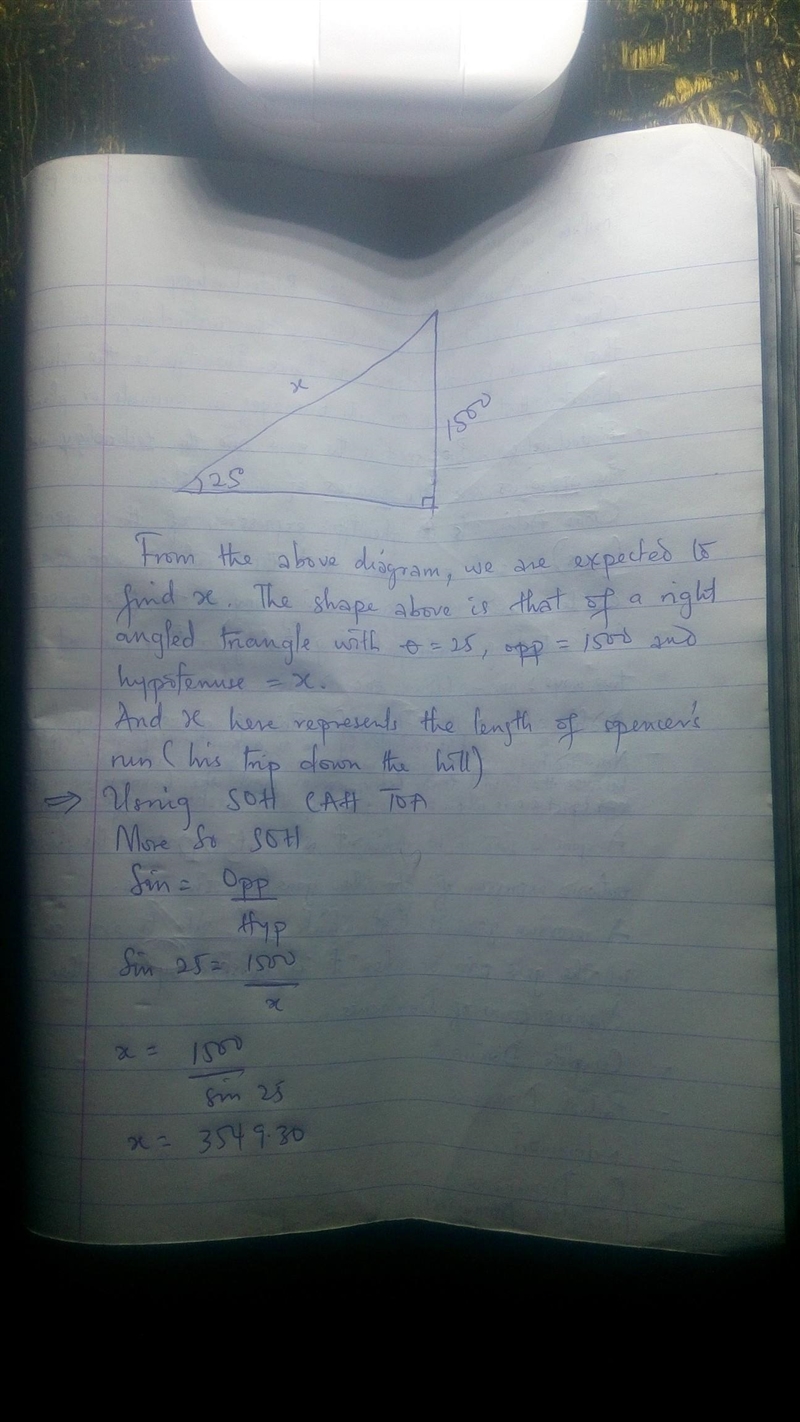 x
1500
25
From the above diagram, we are expected to
find x. The shape above is that of a right
angled triangle with θ = 25, opp = 1500 and
hypotenuse = x.
And x here represents the length of spencer's
run (his trip down the hill)
⇒ Using SOH CAH TOA
More so SOH
Sin = Opp
Hyp
Sin 25 = 1500
x
x = 1500
sin 25
x = 3549.30